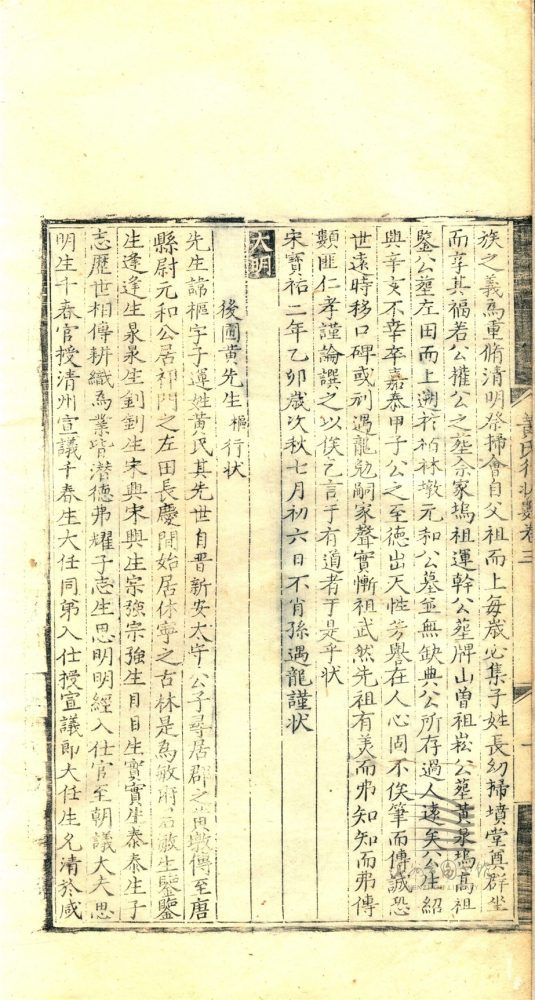 族之義為重脩清明祭掃會自父祖而上每歲必集子姓長幼掃墳堂奠群坐
而享其福若公權公之塋佘家塢祖運幹公墓牌山曽祖崧公塋黃泉塢高祖
鑒公塋左田而上遡於栢林墩元和公墓並無缺典公所存過人遠矣公生紹
興辛亥不幸卒嘉泰甲子公之至徳出天性芳譽在人心固不俟筆而傳誠恐
世遠時移口碑或刓遇龍勉嗣家聲實慚祖武然先祖有美而弗知知而弗傳
類匪仁孝謹論譔之以俟乞言于有道者于是乎狀
宋寳祐二年乙卯歲次秋七月初六日不肖孫遇龍謹狀
大明
後圃黃先生樞行狀
先生諱樞字子運姓黃氏其先世自晋新安太守公子尋居郡之黃墩傳至唐
縣尉元和公居祁門之左田長慶間始居休寧之古林是為敏府君敏生鑒鑒
生逢逢生泉泉生釗釗生宋興宋興生宗強宗強生目目生實實生泰泰生子
志歷世相傳耕織為業皆潛德弗耀子志生思明明經入仕官至朝議大夫思
明生千春官授清州宣議千春生大任同第入仕授宣議郎大任生允清於咸
黃氏行狀類卷三